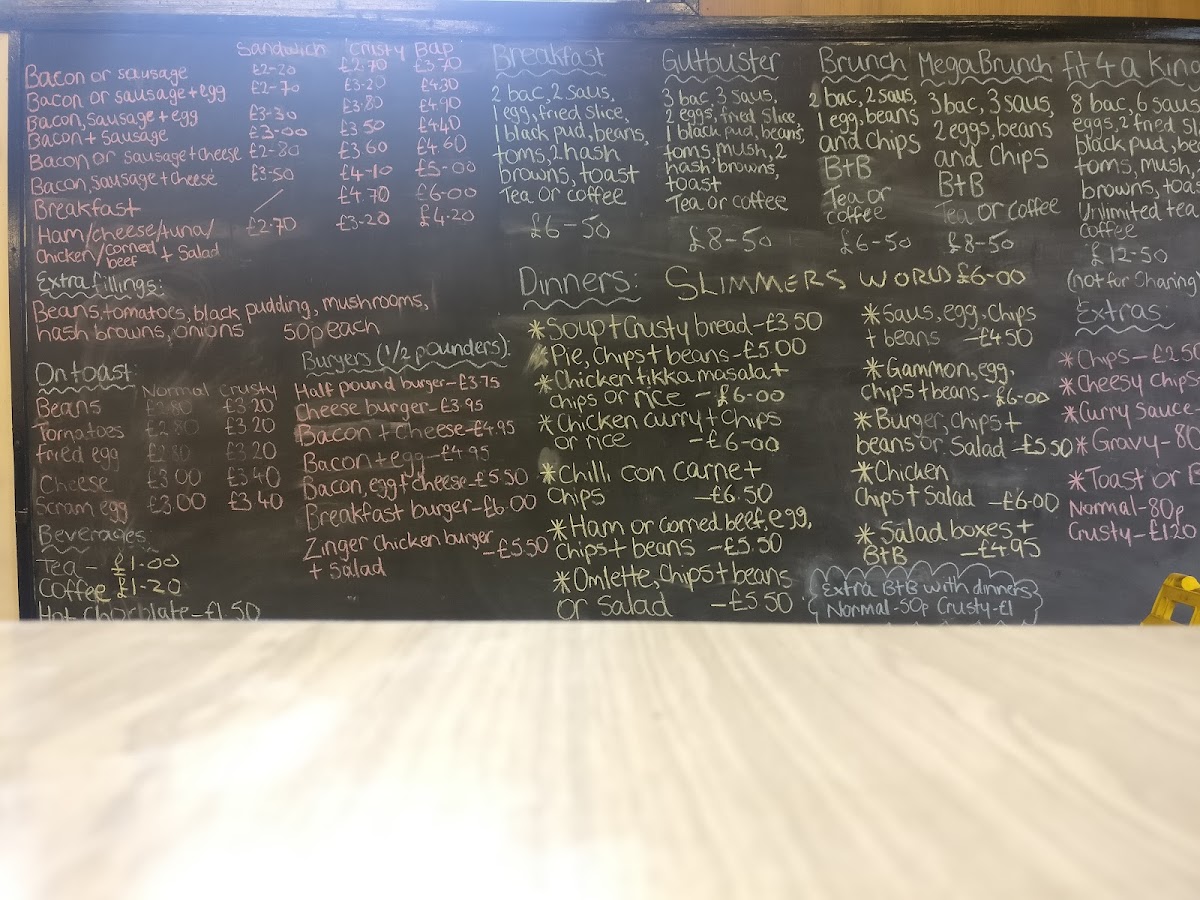 Sandwich Crusty Bap
Bacon or sausage £2-20 £2.70 £3.70
Bacon or sausage + egg £2-70 £3-20 £4.30
Bacon, sausage + egg £3-30 £3.80 £4.90
Bacon + Sausage £3-00 £3.50 £4.40
Bacon or Sausage + Cheese £2-80 £3.60 £4.60
Bacon, Sausage + Cheese £3-50 £4-10 £5-00
Breakfast / £4.70 £6-00
Ham/cheese/tuna/ £2-70 £3-20 £4-20
Chicken/corned beef + Salad
Extra fillings:
Beans, tomatoes, black pudding, mushrooms,
hash browns, onions 50p each
On toast
Normal Crusty
Beans £2.80 £3.20
Tomatoes £2.80 £3.20
Fried egg £2.80 £3.20
Cheese £3.00 £3.40
Scram egg £3.00 £3.40
Beverages
Tea - £1.00
Coffee £1-20
Hot Chocolate - £1.50
Burgers (1/2 pounders):
Half pound burger - £3.75
Cheese burger - £3.95
Bacon + cheese - £4.95
Bacon + egg - £4.95
Bacon, egg + cheese - £5.50
Breakfast burger - £6.00
Zinger Chicken burger
+ Salad - £5.50
Breakfast
2 bac, 2 saus,
1 egg, fried slice,
1 black pud, beans,
toms, 2 hash
browns, toast
Tea or coffee
£6-50
Gutbuster
3 bac, 3 saus,
2 eggs, fried slice
1 black pud, beans,
toms, mush, 2
hash browns,
toast
Tea or coffee
£8-50
Brunch
2 bac, 2 saus,
1 egg, beans
and Chips
B+B
Tea or
coffee
£6-50
Mega Brunch
3 bac, 3 saus,
2 eggs, beans
and Chips
B+B
Tea or coffee
£8-50
fit 4 a King
8 bac, 6 saus
eggs, 2 fried sl
black pud, bea
toms, mush,
browns, toas
Unlimited tea
coffee
£12-50
(not for Sharing
Dinners: SLIMMERS WORLD £6-00
*Soup + Crusty bread - £3.50
*Pie, Chips + beans - £5.00
*Chicken tikka masala +
chips or rice - £6-00
*Chicken curry + Chips
or rice - £6-00
*Chilli con carne +
Chips - £6.50
*Ham or corned beef, egg,
Chips + beans - £5.50
*Omlette, Chips + beans
or Salad - £5.50
*Saus, egg, chips
+ beans - £4.50
*Gammon, egg,
Chips + beans - £6-00
*Burger, chips +
beans or Salad - £5.50
*Chicken
Chips + Salad - £6-00
*Salad boxes +
B+B - £4.95
Extra B+B with dinners
Normal - 50p Crusty - £1
Extras:
*Chips - £2.50
*Cheesy chips
*Curry sauce
*Gravy - 80
*Toast or B
Normal - 80p
Crusty - £1.20